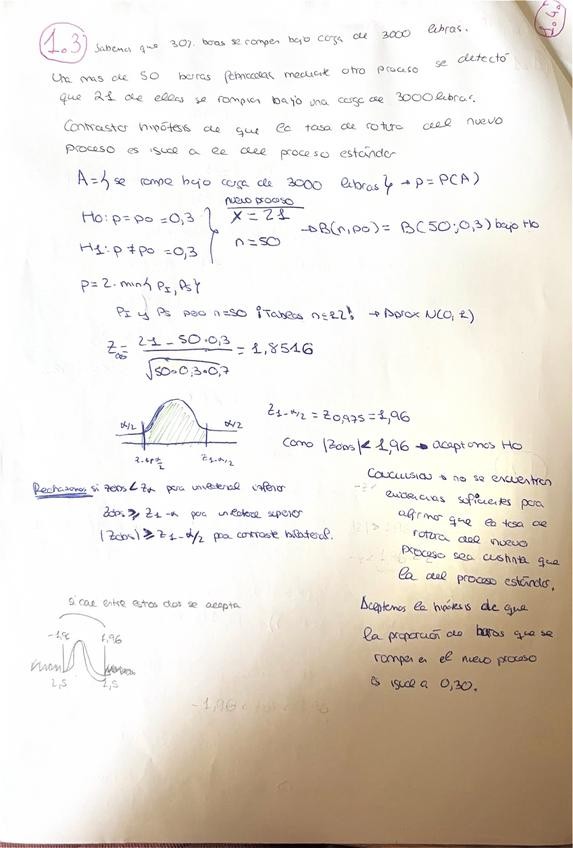 1.3
1.4.
Sabemos que 30% barras se rompen bajo carga de 3000 libras.
Una mas de 50 barras fabricadas mediante otro proceso se detectó
que 21 de ellas se rompían bajo una carga de 3000 libras.
Contrastar hipótesis de que la tasa de rotura del nuevo
proceso es igual a la del proceso estándar
A = { se rompe bajo carga de 3000 libras } → p = P(A)
nuevo proceso
H0: p = p0 = 0,3
x = 21
→ B(n, p0) = B(50; 0,3) bajo H0
H1: p ≠ p0 = 0,3
n = 50
p = 2 · min { PI, PS }
PI y PS pero n=50 ¡Tablas n=22! → Aprox N(0, 1)
Z = 21 - 50·0,3 / √50·0,3·0,7 = 1,8516
α/2 α/2
Z1-α/2 = Z0,975 = 1,96
Z1-α/2
Como |Zobs| < 1,96 → aceptamos H0
Rechazamos si Zobs < Zα para unilateral inferior
Zobs ≥ Z1-α para unilateral superior
|Zobs| ≥ Z1-α/2 para contraste bilateral.
Conclusión → no se encuentran
evidencias suficientes para
afirmar que la tasa de
rotura del nuevo
proceso sea distinta que
la del proceso estándar.
Si cae entre estos dos se acepta
1,96
2,5 2,5
Aceptamos la hipótesis de que
la proporción de barras que se
rompen en el nuevo proceso
es igual a 0,30.